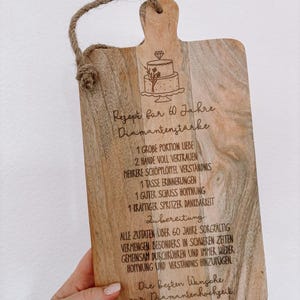 Rezept für 60 Jahre
Diamantenstärke
1 GROßE PORTION LIEBE
2 HÄNDE VOLL VERTRAUEN
MEHRERE SCHÖPFLÖFFEL VERSTÄNDNIS
1 TASSE ERINNERUNGEN
1 GUTER SCHUSS HOFFNUNG
1 KRÄFTIGER SPRITZER DANKBARKEIT
Zubereitung
ALLE ZUTATEN ÜBER 60 JAHRE SORGFÄLTIG
VERMENGEN, BESONDERS IN SCHWEREN ZEITEN
GEMEINSAM DURCHRÜHREN UND IMMER WIEDER
HOFFNUNG UND VERSTÄNDNIS HINZUFÜGEN.
Die besten Wünsche
Diamanthochzeit